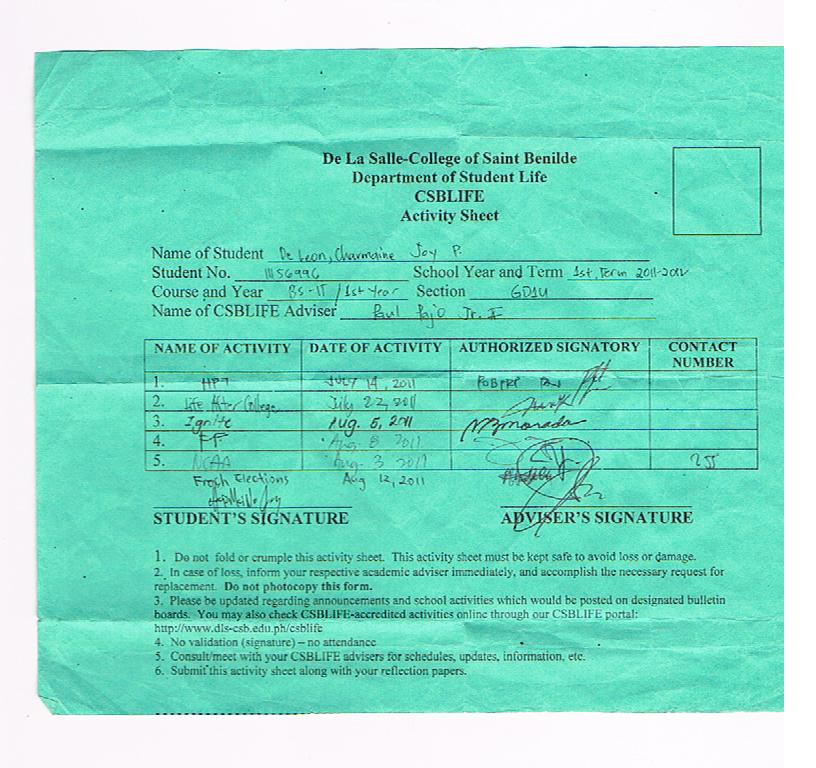 De La Salle-College of Saint Benilde
Department of Student Life
CSBLIFE
Activity Sheet
Name of Student De Leon, Charmaine Joy P.
Student No. 1156996 School Year and Term 1st, Term 2011-2012
Course and Year BS-IT / 1st Year Section GD1U
Name of CSBLIFE Adviser Paul Pajo Jr. II
NAME OF ACTIVITY DATE OF ACTIVITY AUTHORIZED SIGNATORY CONTACT NUMBER
1. HP7 JULY 14, 2011
2. Life After College July 22, 2011
3. Ignite Aug. 5, 2011
4. FF Aug. 8 2011
5. NCAA Aug. 3 2011
Frosh Elections Aug 12, 2011
STUDENT'S SIGNATURE ADVISER'S SIGNATURE
1. Do not fold or crumple this activity sheet. This activity sheet must be kept safe to avoid loss or damage.
2. In case of loss, inform your respective academic adviser immediately, and accomplish the necessary request for
replacement. Do not photocopy this form.
3. Please be updated regarding announcements and school activities which would be posted on designated bulletin
boards. You may also check CSBLIFE-accredited activities online through our CSBLIFE portal:
http://www.dls-csb.edu.ph/csblife
4. No validation (signature) – no attendance
5. Consult/meet with your CSBLIFE advisers for schedules, updates, information, etc.
6. Submit this activity sheet along with your reflection papers.